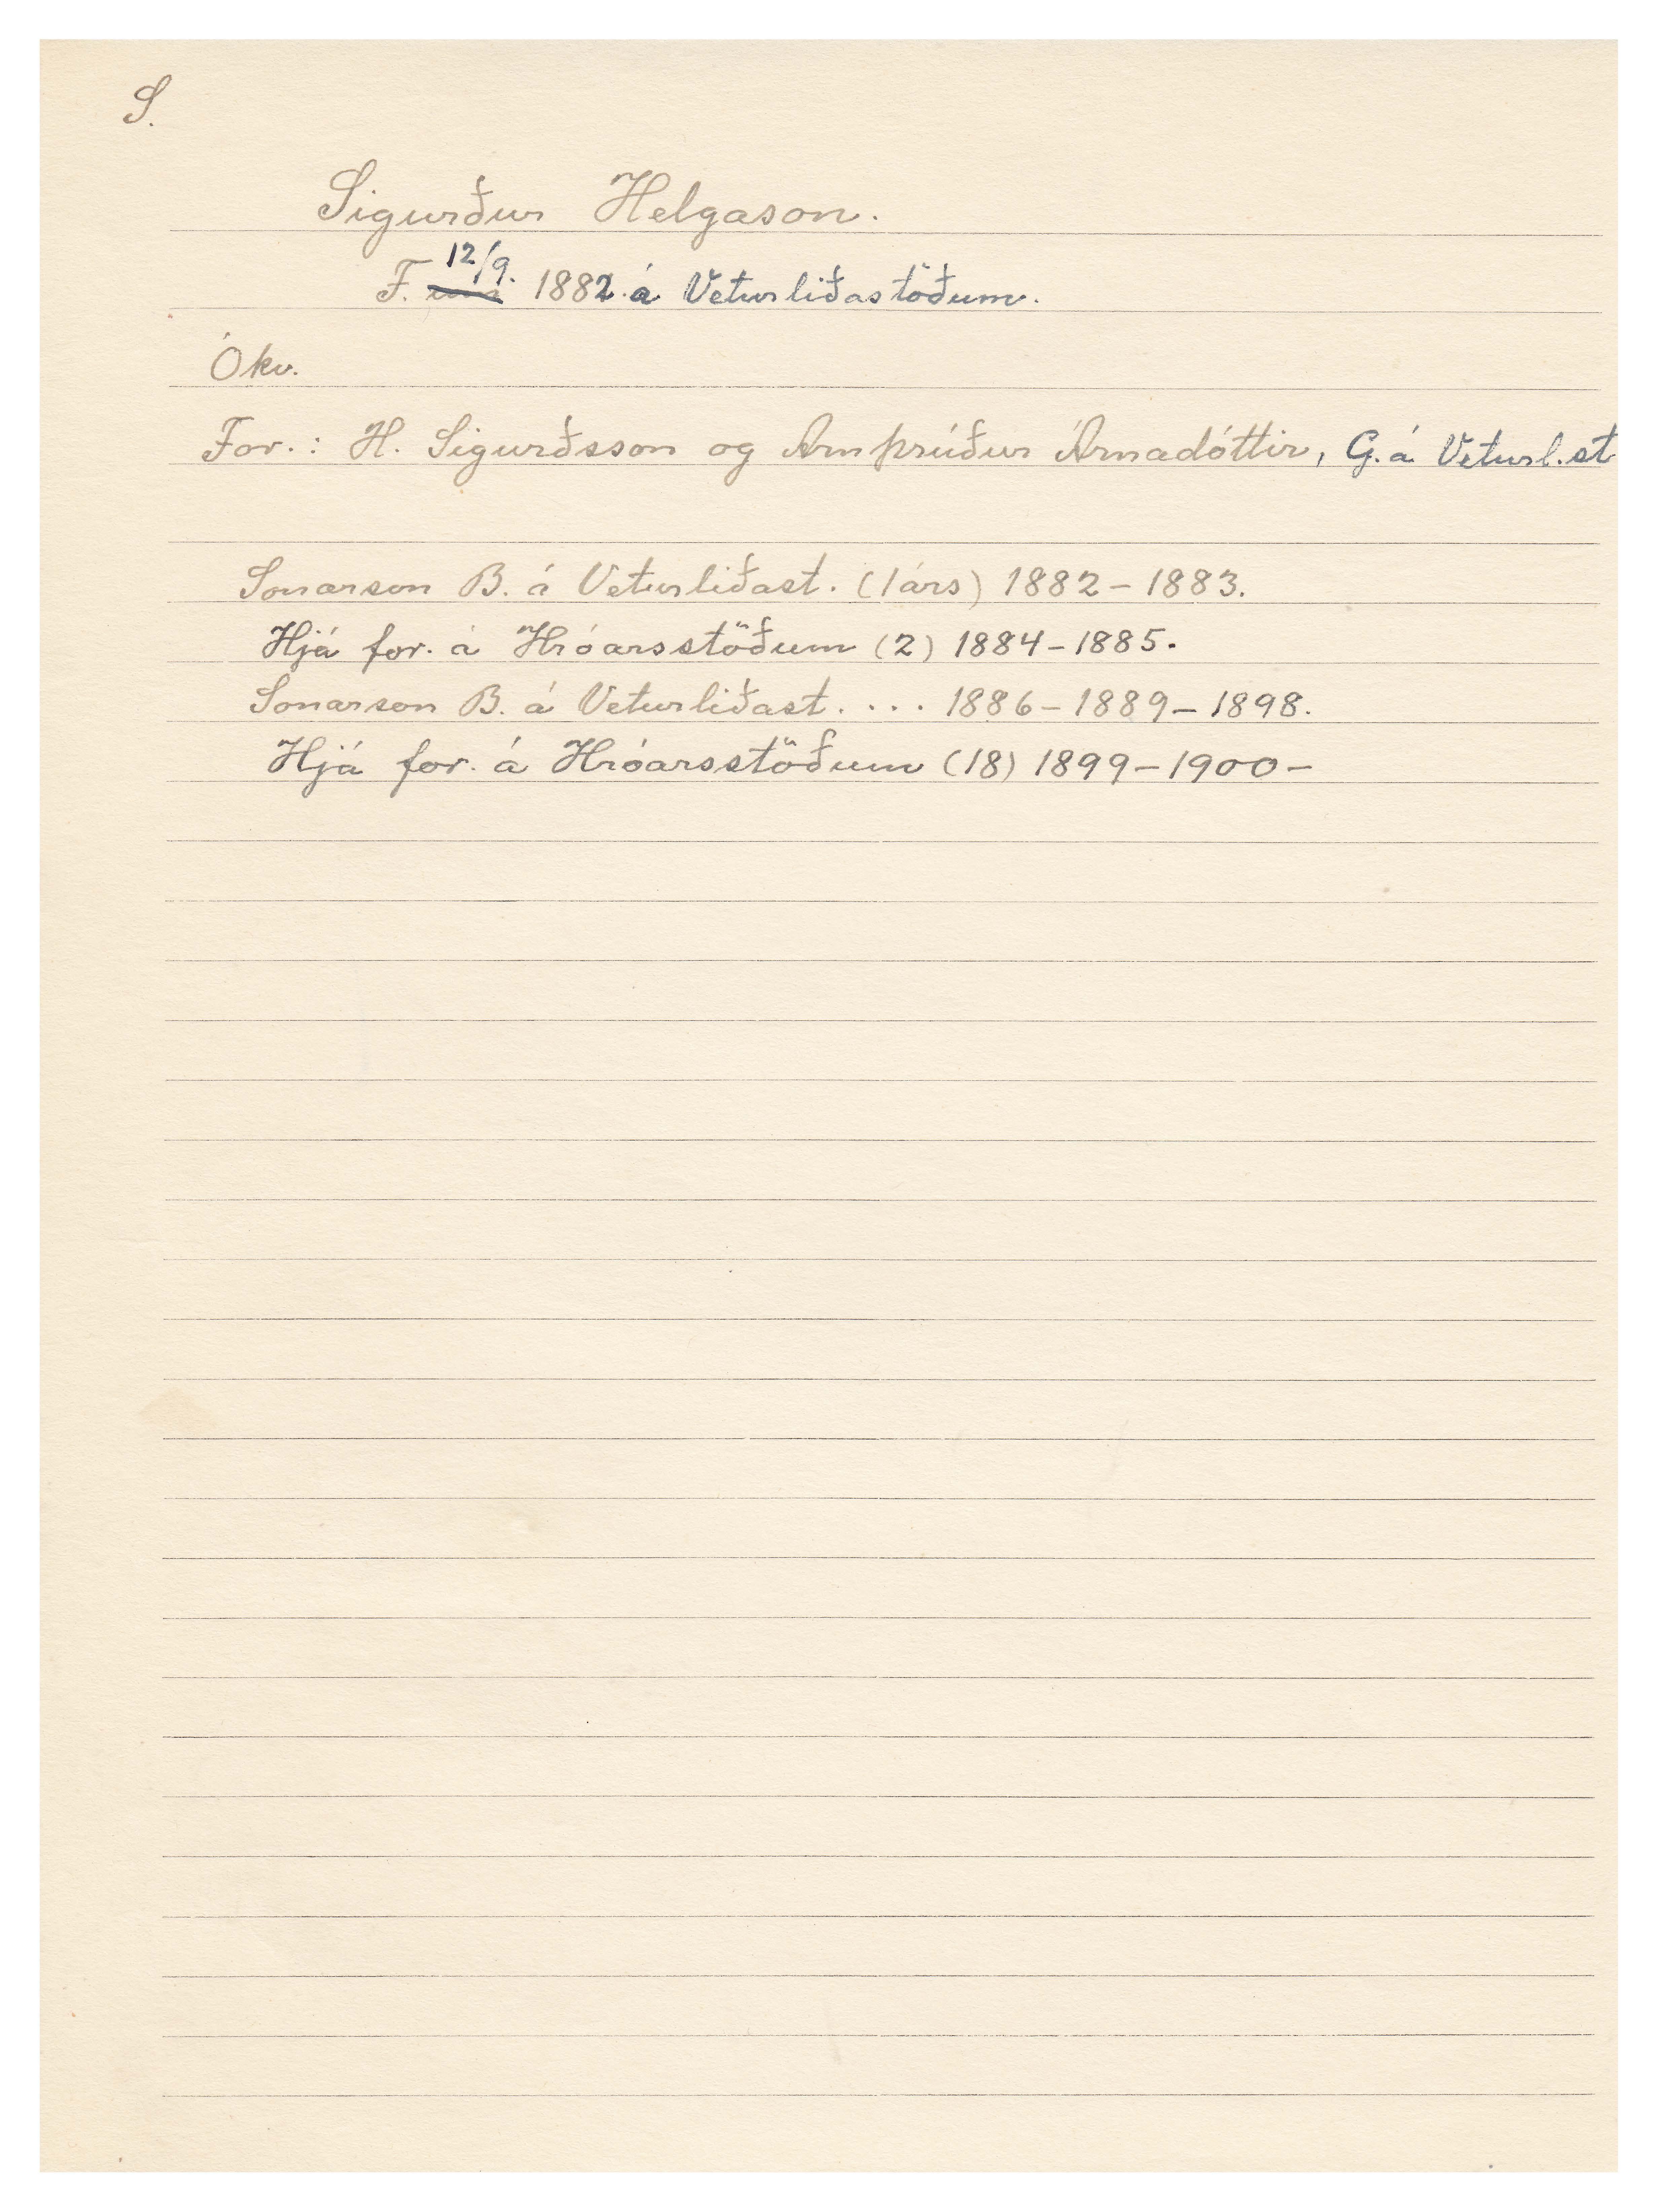 S.
Sigurður Helgason.
F. 12/9. 1882 á Veturliðastöðum.
Ókv.
For.: H. Sigurðsson og Arnþrúður Árnadóttir, G. á Veturl.st
Sonarson B. á Veturliðast. (1 árs) 1882-1883.
Hjá for. á Hróarsstöðum (2) 1884-1885.
Sonarson B. á Veturliðast. ... 1886-1889-1898.
Hjá for. á Hróarsstöðum (18) 1899-1900-